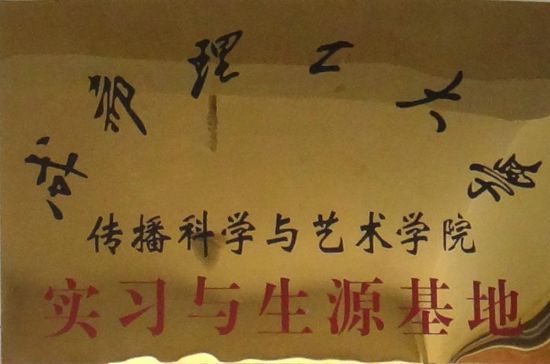 成都理工大學
传播科学与艺术学院
实习与生源基地